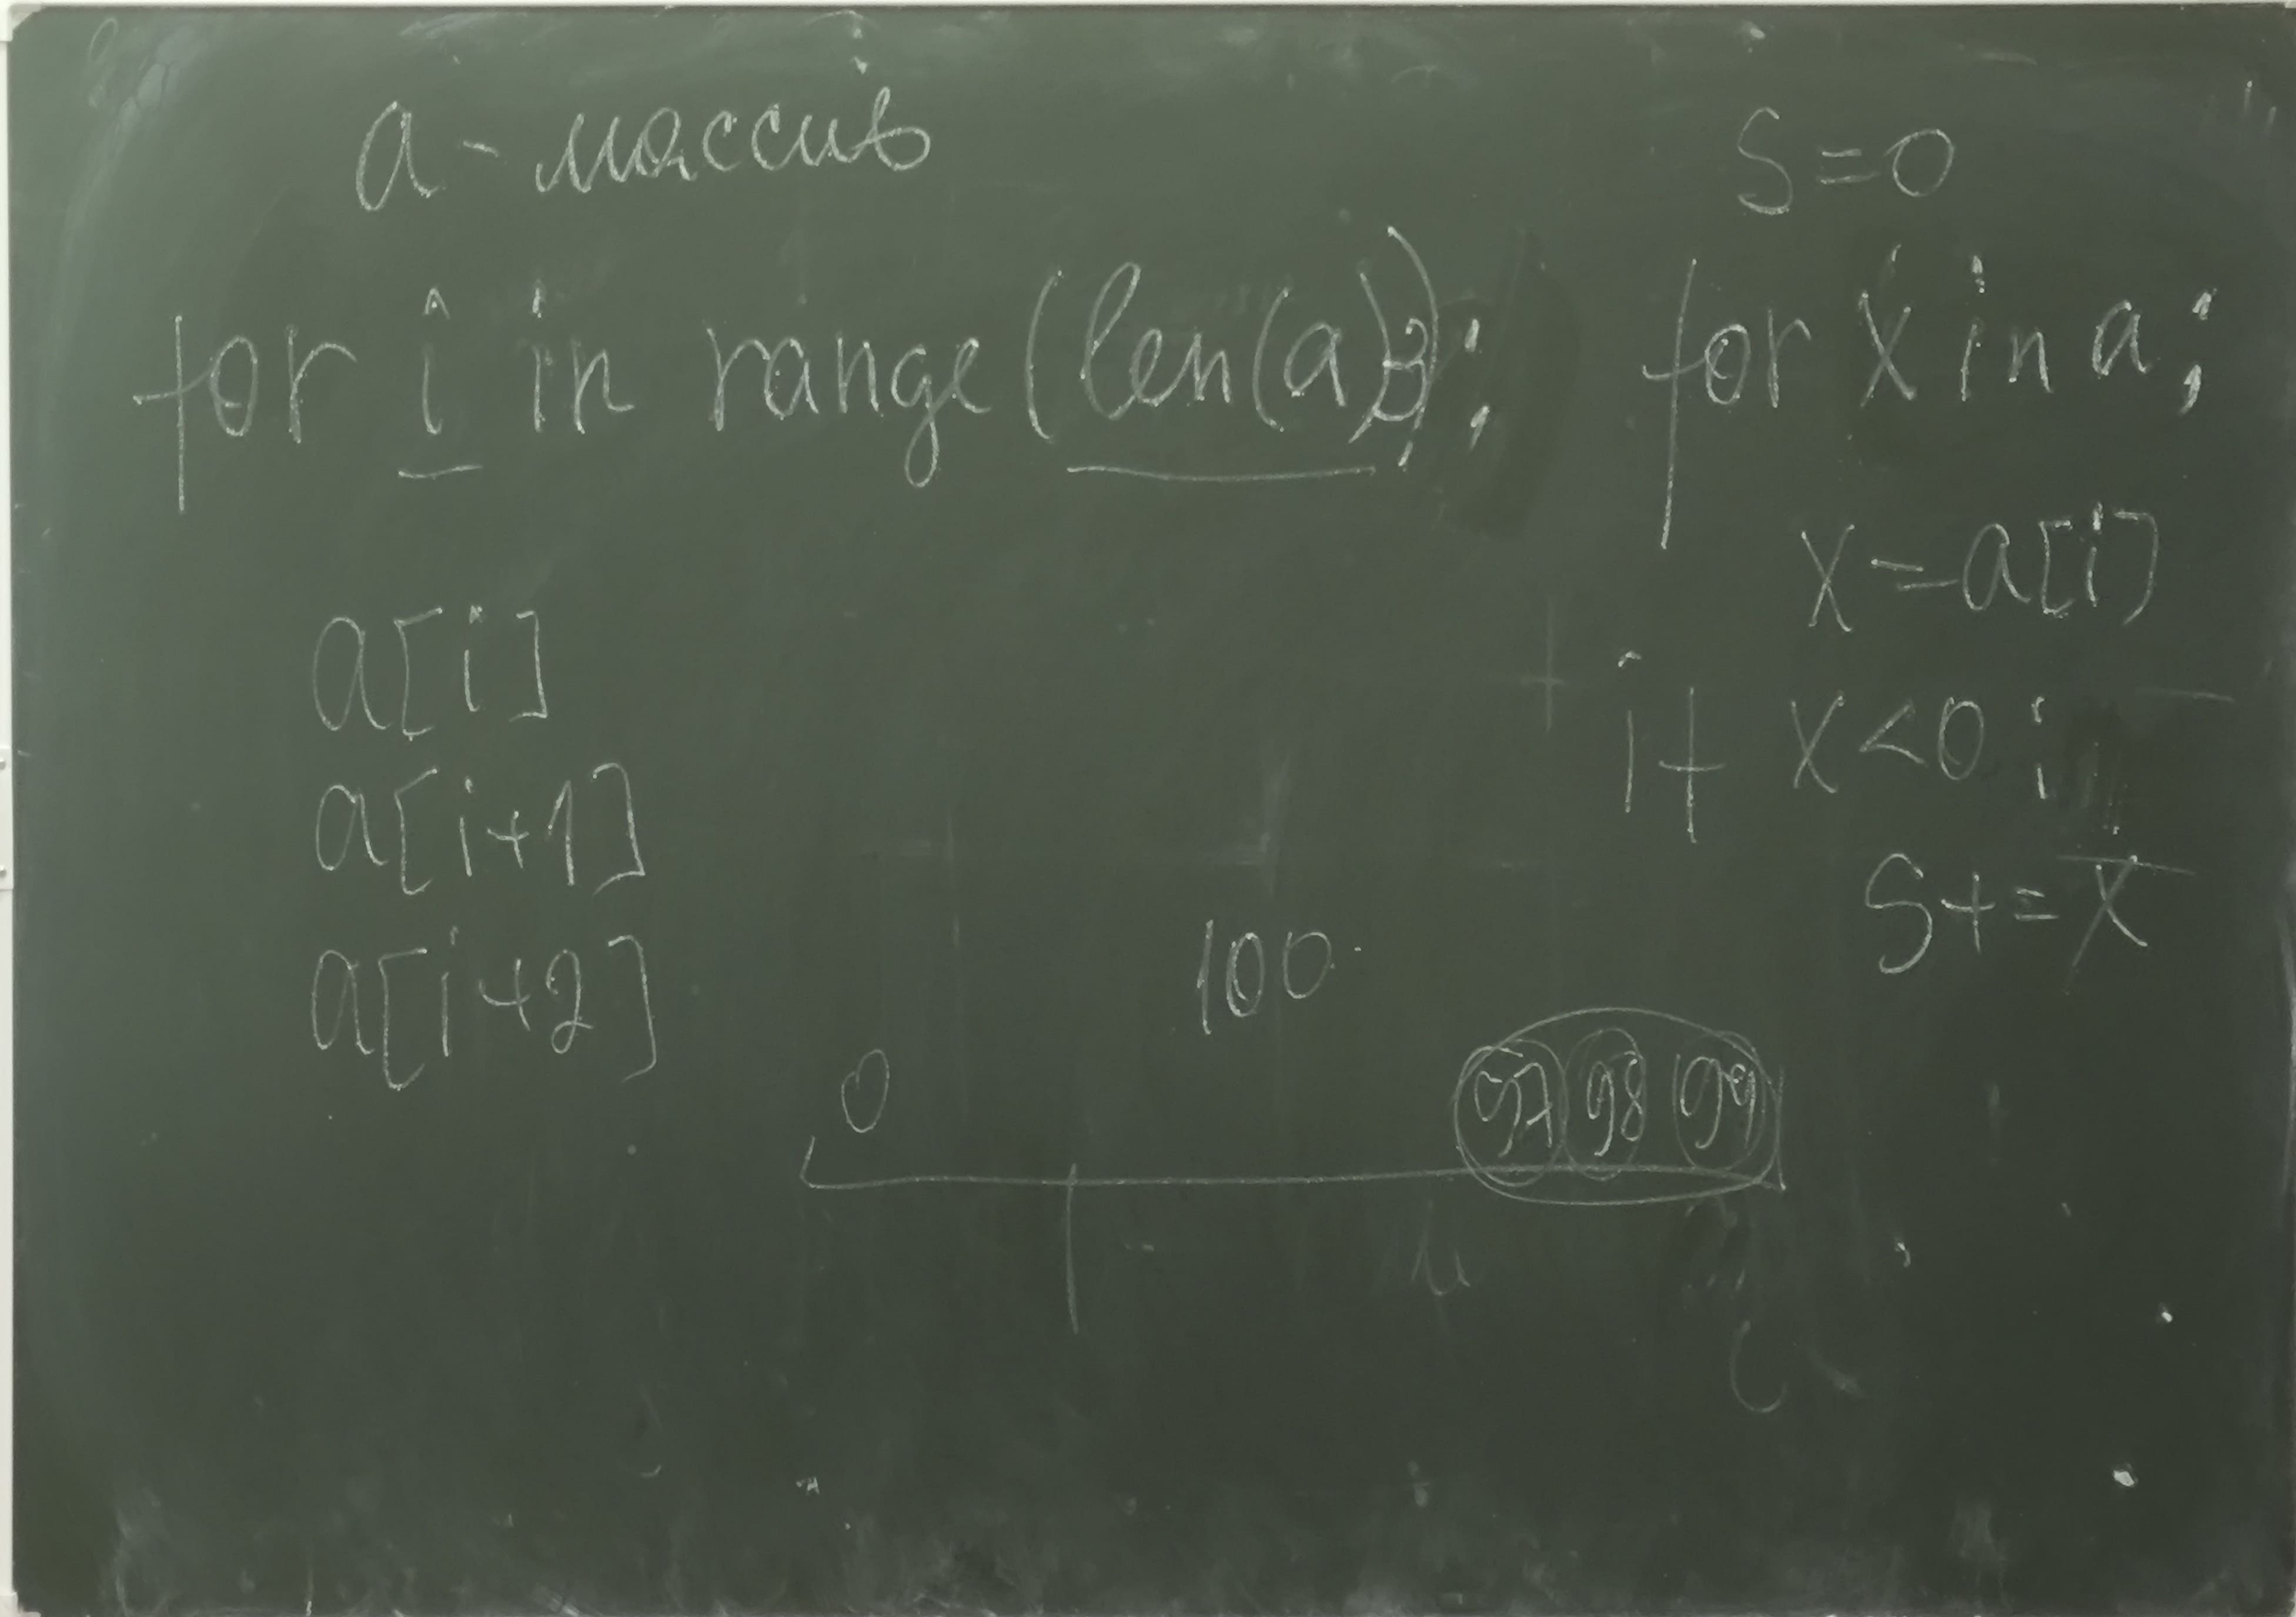 a - массив
for i in range (len(a)):
a[i]
a[i+1]
a[i+2]
S=0
for x in a:
x = a[i]
if x<0:
S+=x
100
0 97 98 99